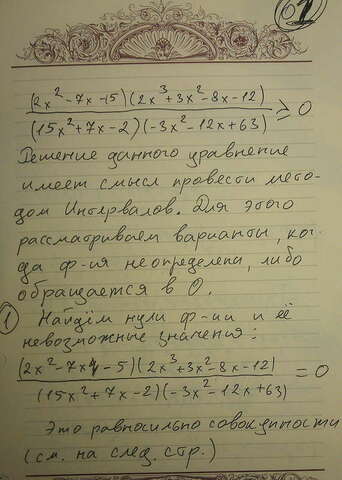 1
(2x² - 7x - 15)(2x³ + 3x² - 8x - 12)
(15x² + 7x - 2)(-3x² - 12x + 63) ≥ 0
Решение данного уравнение
имеет смысл провести мето-
дом Интервалов. Для этого
рассматриваем варианты, ког-
да ф-ия неопределена, либо
обращается в 0.
1 Найдём нули ф-ии и её
невозможные значения:
(2x² - 7x - 5)(2x³ + 3x² - 8x - 12)
(15x² + 7x - 2)(-3x² - 12x + 63) = 0
Это равносильно совокупности
(см. на след. стр.)